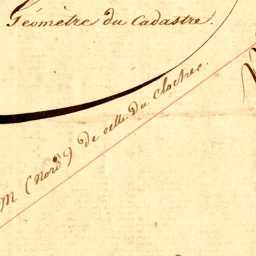 Géomètre du Cadastre.
M (Nord) de celle du Clocher.